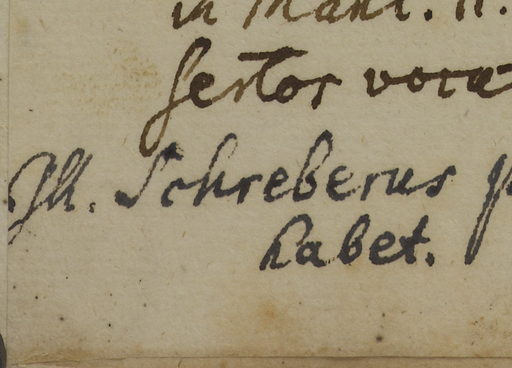 in Mant. II.
sertos voca
Ill. Schreberus p
habet.